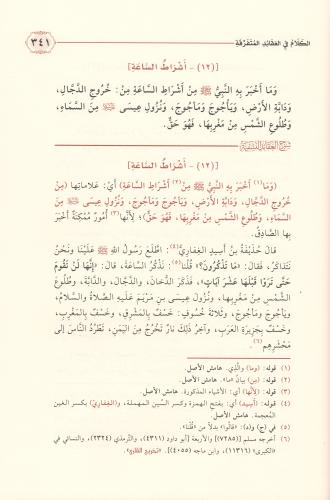 الكَلَامُ فِي العَقَائِدِ المُتَفَرِّقَةِ
٣٤١
[(١٢) - أَشْرَاطُ السَّاعَةِ]
وَمَا أَخْبَرَ بِهِ النَّبِيُّ ﷺ مِنْ أَشْرَاطِ السَّاعَةِ مِنْ: خُرُوجِ الدَّجَّالِ،
وَدَابَّةِ الأَرْضِ، وَيَأْجُوجَ وَمَأْجُوجَ، وَنُزُولِ عِيسَى مِنَ السَّمَاءِ،
وَطُلُوعِ الشَّمْسِ مِنْ مَغْرِبِهَا، فَهُوَ حَقٌّ.
شرح العقائد النسفية
[(١٢) - أَشْرَاطُ السَّاعَةِ]
(وَمَا(١) أَخْبَرَ بِهِ النَّبِيُّ ﷺ مِنْ(٢) أَشْرَاطِ السَّاعَةِ) أَيْ: عَلَامَاتِهَا (مِنْ
خُرُوجِ الدَّجَّالِ، وَدَابَّةِ الأَرْضِ، وَيَأْجُوجَ وَمَأْجُوجَ، وَنُزُولِ عِيسَى مِنَ
السَّمَاءِ، وَطُلُوعِ الشَّمْسِ مِنْ مَغْرِبِهَا، فَهُوَ حَقٌّ)؛ لِأَنَّهَا(٣) أُمُورٌ مُمْكِنَةٌ أَخْبَرَ
بِهَا الصَّادِقُ.
قَالَ حُذَيْفَةُ بْنُ أَسِيدٍ الغِفَارِيُّ(٤): اطَّلَعَ رَسُولُ اللهِ ﷺ عَلَيْنَا وَنَحْنُ
نَتَذَاكَرُ، فَقَالَ: «مَا تَذْكُرُونَ؟» قُلْنَا(٥): نَذْكُرُ السَّاعَةَ، قَالَ: «إِنَّهَا لَنْ تَقُومَ
حَتَّى تَرَوْا قَبْلَهَا عَشْرَ آيَاتٍ»، فَذَكَرَ الدُّخَانَ، وَالدَّجَّالَ، وَالدَّابَّةَ، وَطُلُوعَ
الشَّمْسِ مِنْ مَغْرِبِهَا، وَنُزُولَ عِيسَى بْنِ مَرْيَمَ عَلَيْهِ الصَّلَاةُ وَالسَّلَامُ،
وَيَأْجُوجَ وَمَأْجُوجَ، وَثَلَاثَةَ خُسُوفٍ: خَسْفٌ بِالمَشْرِقِ، وَخَسْفٌ بِالمَغْرِبِ،
وَخَسْفٌ بِجَزِيرَةِ العَرَبِ، وَآخِرُ ذَلِكَ نَارٌ تَخْرُجُ مِنَ اليَمَنِ، تَطْرُدُ النَّاسَ إِلَى
مَحْشَرِهِمْ(٦).
(١) قوله: (وما) والَّذي. هامش الأصل.
(٢) قوله: (مِن) بيان «ما». هامش الأصل.
(٣) قوله: (لأنَّها) أي: الأشياء المذكورة. هامش الأصل.
(٤) قوله: (أَسِيد) أي: بفتح الهمزة وكسر السِّين المهملة، و(الغِفاريّ) بكسر الغين
المعجمة. هامش الأصل.
(٥) في (ج) و(د): «قالوا» بدلاً من «قُلنا».
(٦) أخرجه مسلم [(٧٢٨٥)] والأربعة [أبو داود (٤٣١١)، والترمذي (٢٣٢٤)، والنسائي في
«الكبرى» (١١٣١٦)، وابن ماجه (٤٠٥٥)].